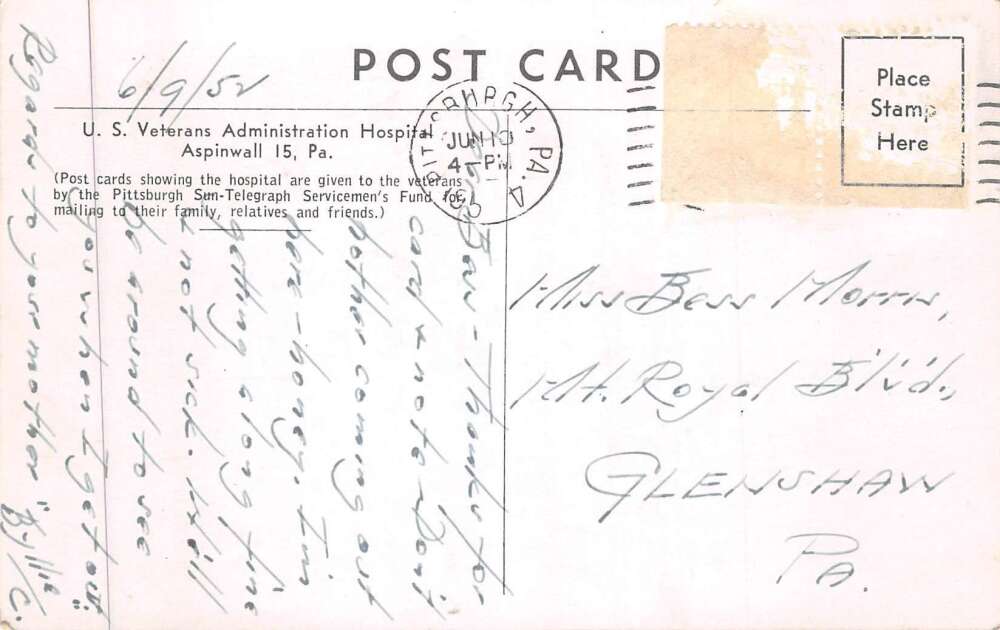 POST CARD
6/9/52
U. S. Veterans Administration Hospital
Aspinwall 15, Pa.
(Post cards showing the hospital are given to the veterans
by the Pittsburgh Sun-Telegraph Servicemen's Fund for
mailing to their family, relatives and friends.)
JUN 10
4-PM
PA. 4
Place
Stamp
Here
Dear
Bess - Thanks for
card & note. Don't
bother coming out
here - honey. I'm
getting along fine
& not sick.
be around to see
you when I get out.
Regards to your mother
Miss Bess Morris,
Mt. Royal Blvd.,
GLENSHAW
PA.